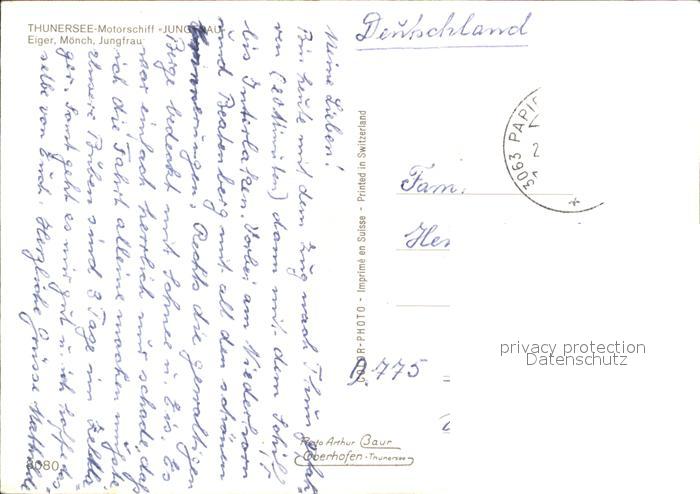 THUNERSEE-Motorschiff «JUNGFRAU»
Eiger, Mönch, Jungfrau
Meine Lieben!
Bin heute mit dem Zug nach Thun gefah-
ren (20 Minuten) dann mit dem Schiff
bis Interlaken. Vorbei am Niederhorn
und Beatenberg mit all den schönen
Erinnerungen. Rechts die gewaltigen
Berge bedeckt mit Schnee u. Eis. Es
war einfach herrlich nur schade, daß
ich die Fahrt alleine machen mußte
unsere Buben sind 3 Tage im
ger. Sonst geht es mir gut u. ich hoffe das-
selbe von Euch. Herzliche Grüsse Mathilde
8080
COLOR-PHOTO - Imprimé en Suisse - Printed in Switzerland
Photo Arthur Baur
Oberhofen-Thunersee
Deutschland
3063 PAPI
2
Fam.
Her
D 775
privacy protection
Datenschutz